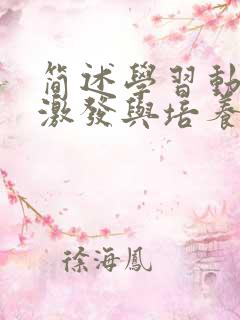 簡述學習動
激發與培養
徐海鳳